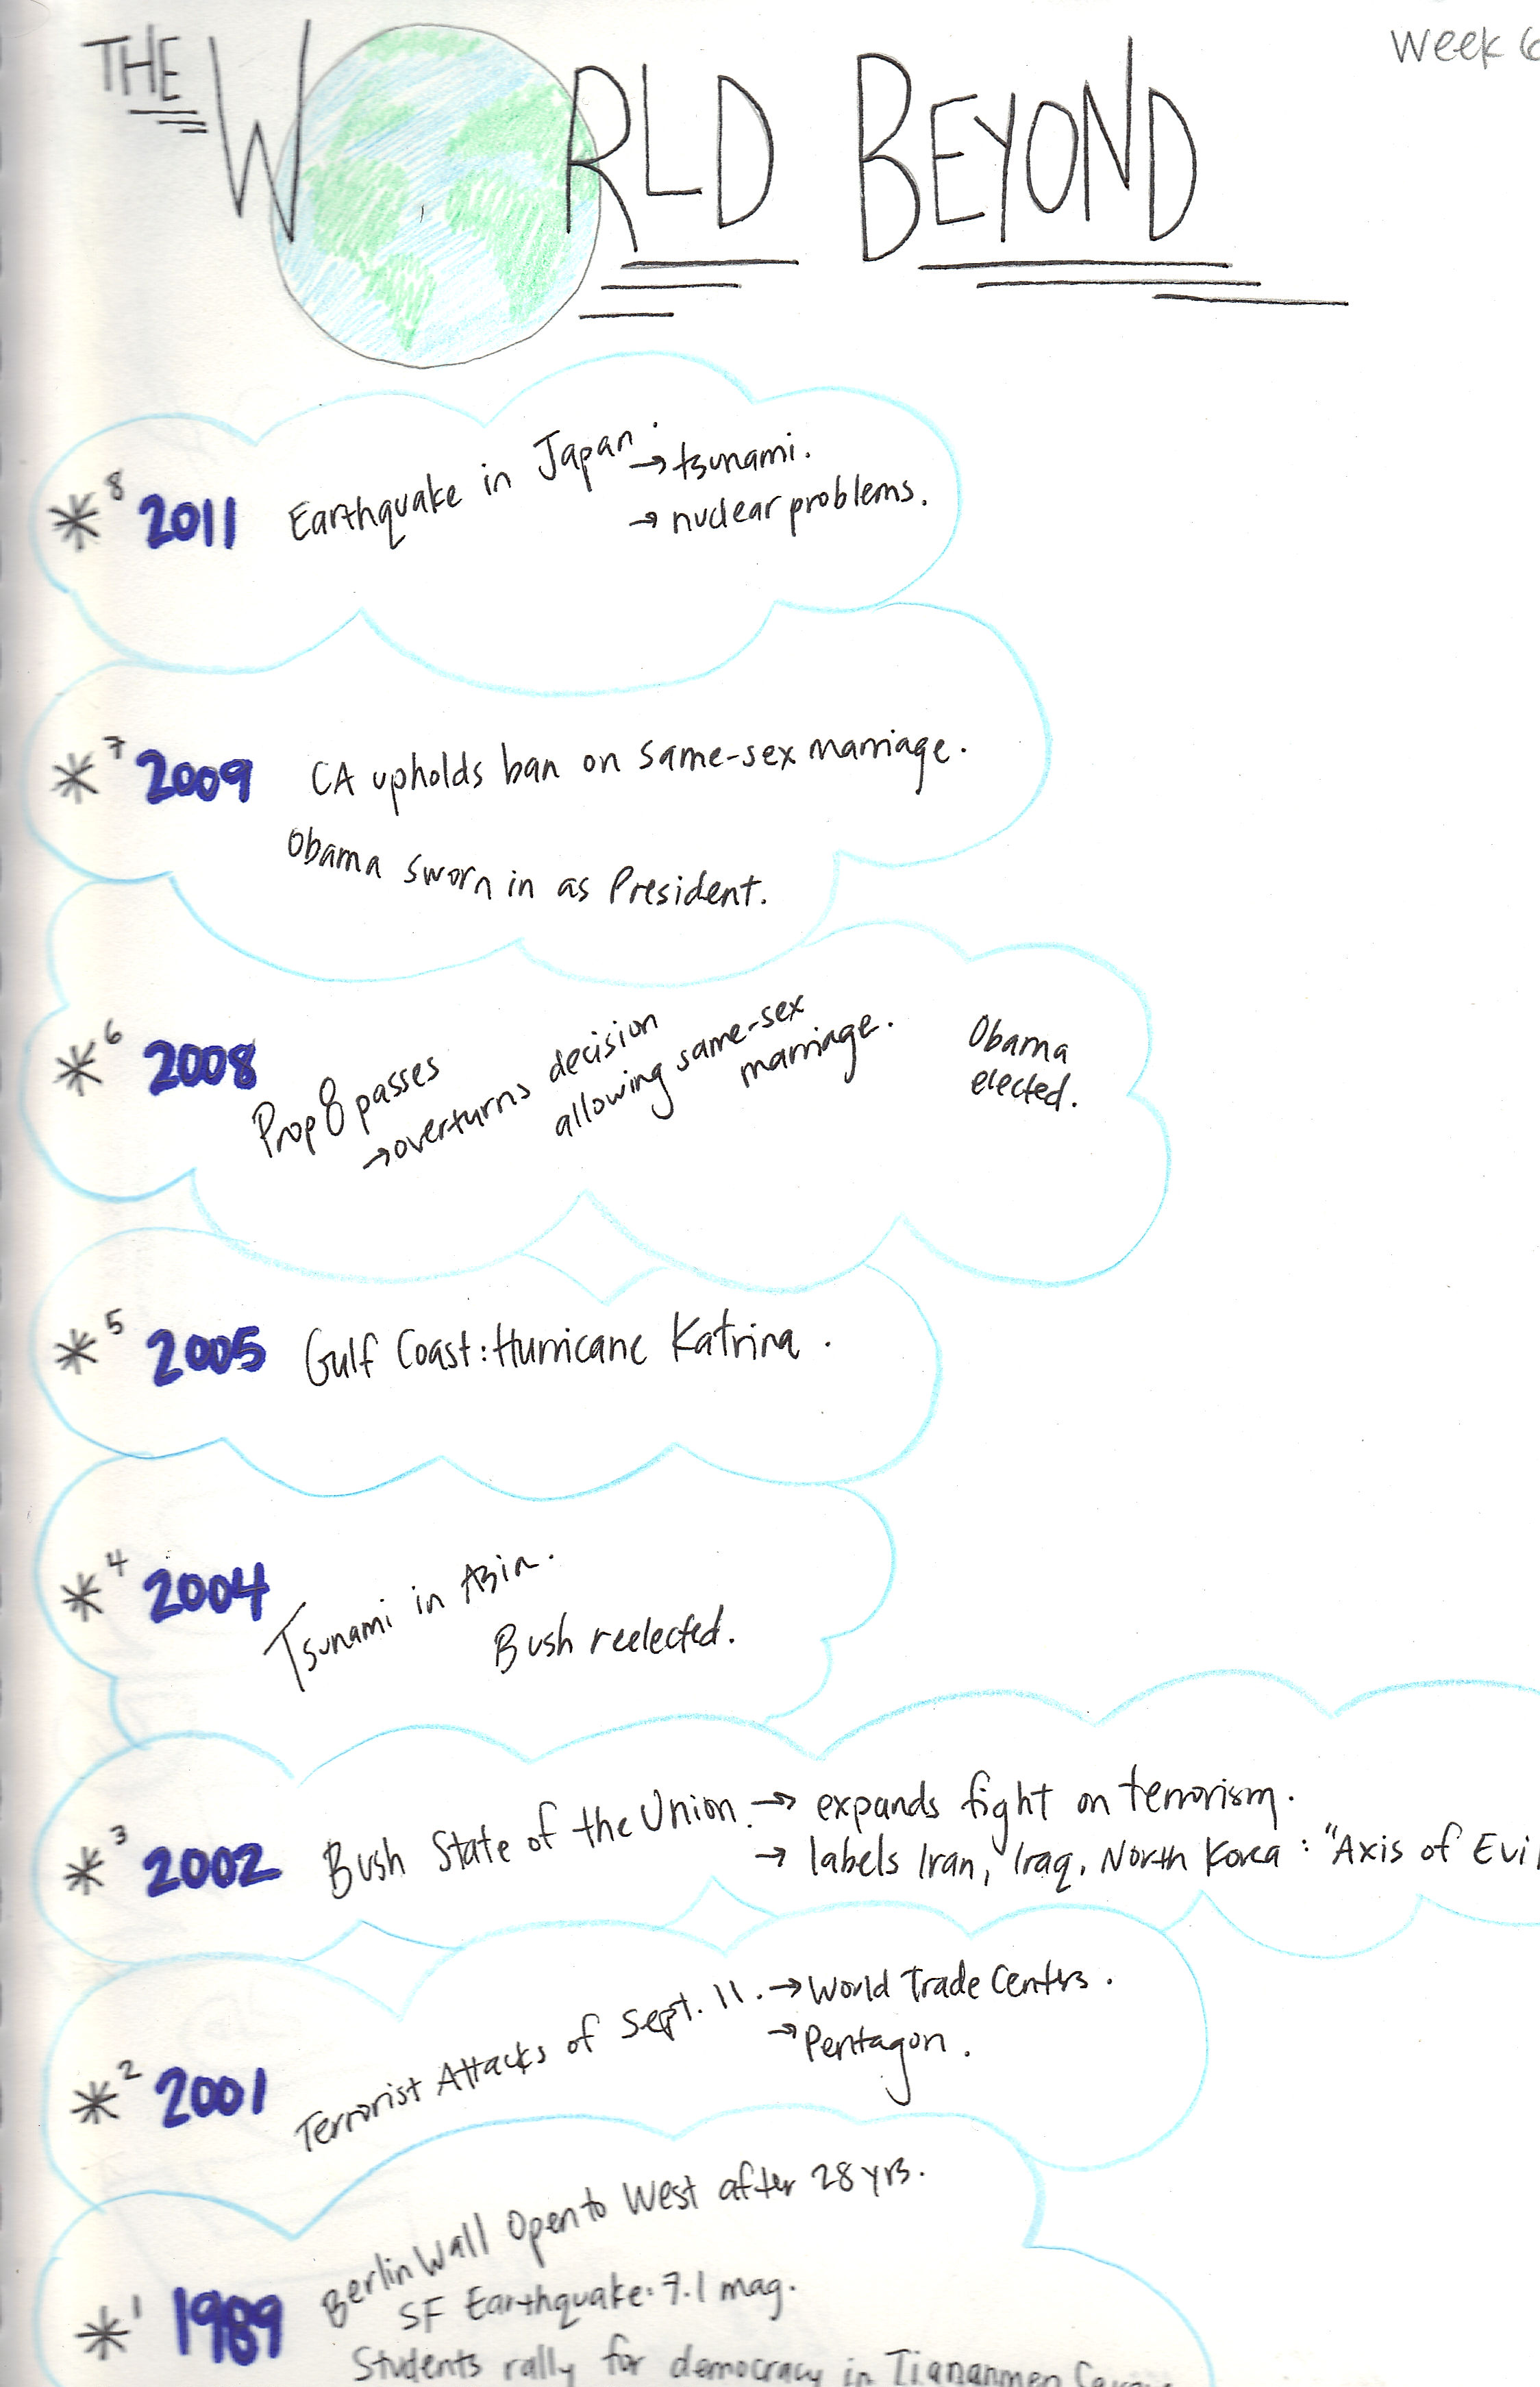 Week 6
THE WORLD BEYOND
*8 2011 Earthquake in Japan.
→ tsunami.
→ nuclear problems.
*7 2009 CA upholds ban on same-sex marriage.
Obama sworn in as President.
*6 2008 Prop 8 passes
→ overturns decision
allowing same-sex
marriage.
Obama
elected.
*5 2005 Gulf Coast: Hurricane Katrina.
*4 2004 Tsunami in Asia.
Bush reelected.
*3 2002 Bush State of the Union. → expands fight on terrorism.
→ labels Iran, Iraq, North Korea: "Axis of Evil
*2 2001 Terrorist Attacks of Sept. 11. → World Trade Centers.
→ Pentagon.
*1 1989 Berlin Wall Open to West after 28 yrs.
SF Earthquake: 7.1 mag.
Students rally for democracy in Tiananmen